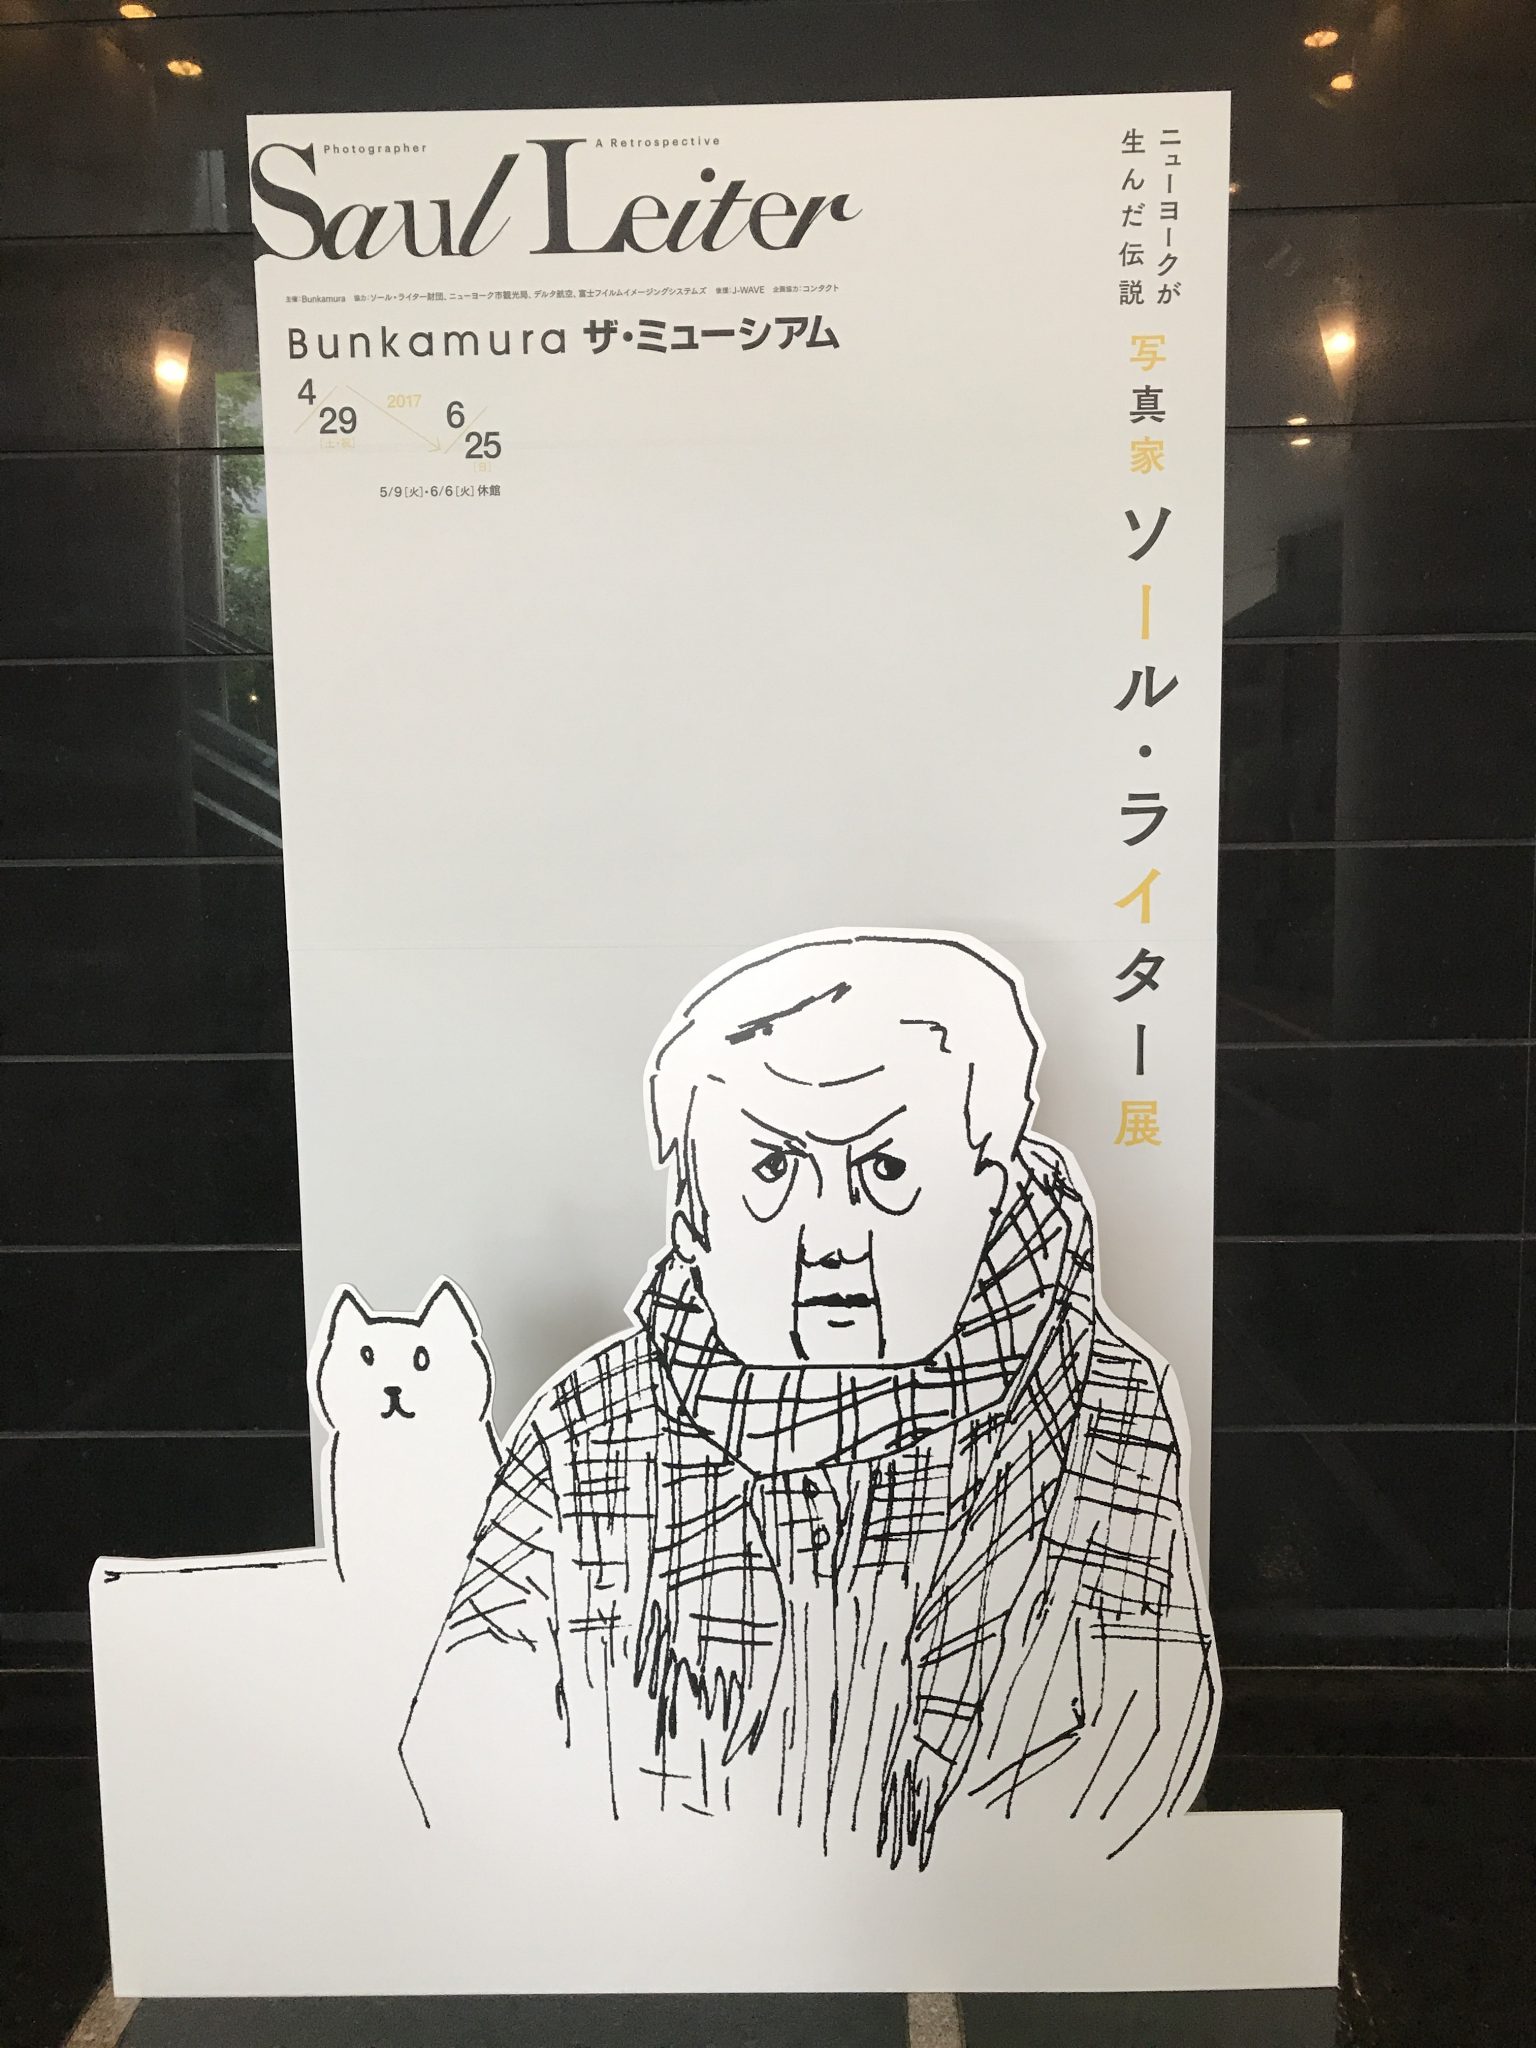 Photographer
A Retrospective
Saul Leiter
主催:Bunkamura 協力:ソール・ライター財団、ニューヨーク市観光局、デルタ航空、富士フイルムイメージングシステムズ 後援:J-WAVE 企画協力:コンタクト
Bunkamura ザ・ミュージアム
4/29[土・祝] 2017 6/25[日]
5/9[火]・6/6[火]休館
ニューヨークが
生んだ伝説
写真家 ソール・ライター展